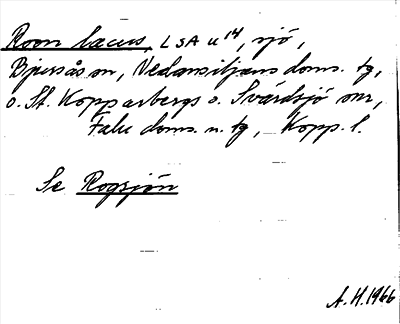 Roon lacus, LSA u 14, sjö,
Bjursås sn, Nedansiljans doms. tg,
o. St. Kopparbergs o. Svärdsjö snr,
Falu doms. n. tg, Kopp. l.
Se Rogsjön
A.H. 1966